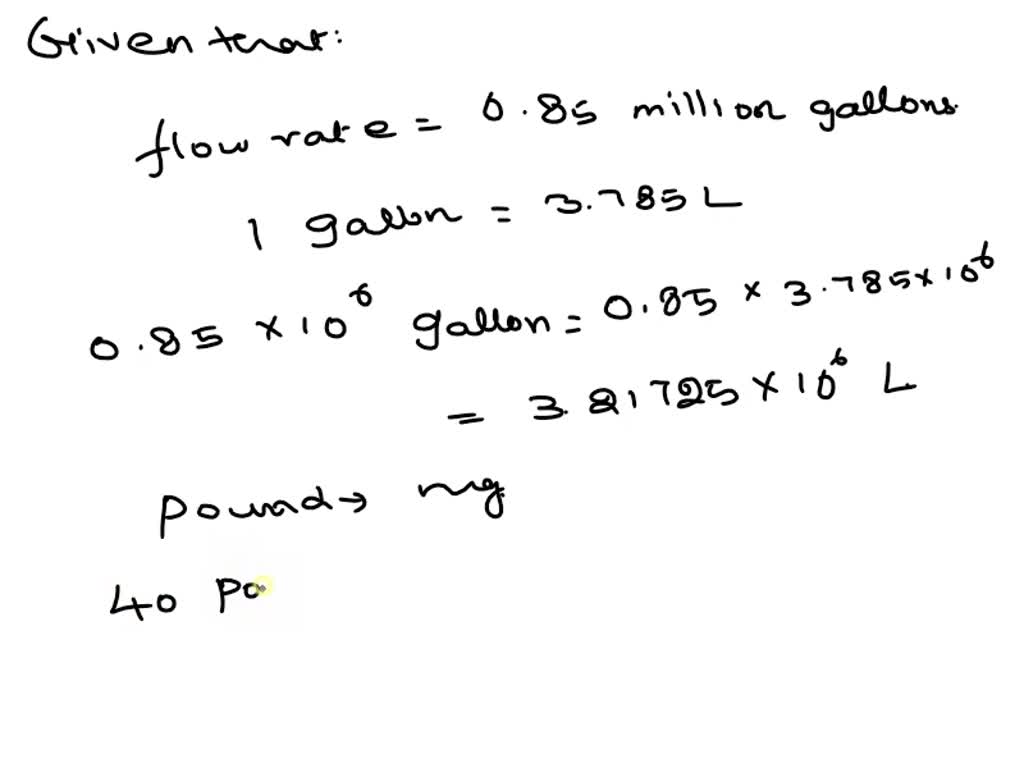 Given that:
flow rate = 0.85 million gallons.
1 gallon = 3.785 L
0.85 × 10⁶ gallon = 0.85 × 3.785 × 10⁶
= 3.21725 × 10⁶ L
Pound → mg
40 Po